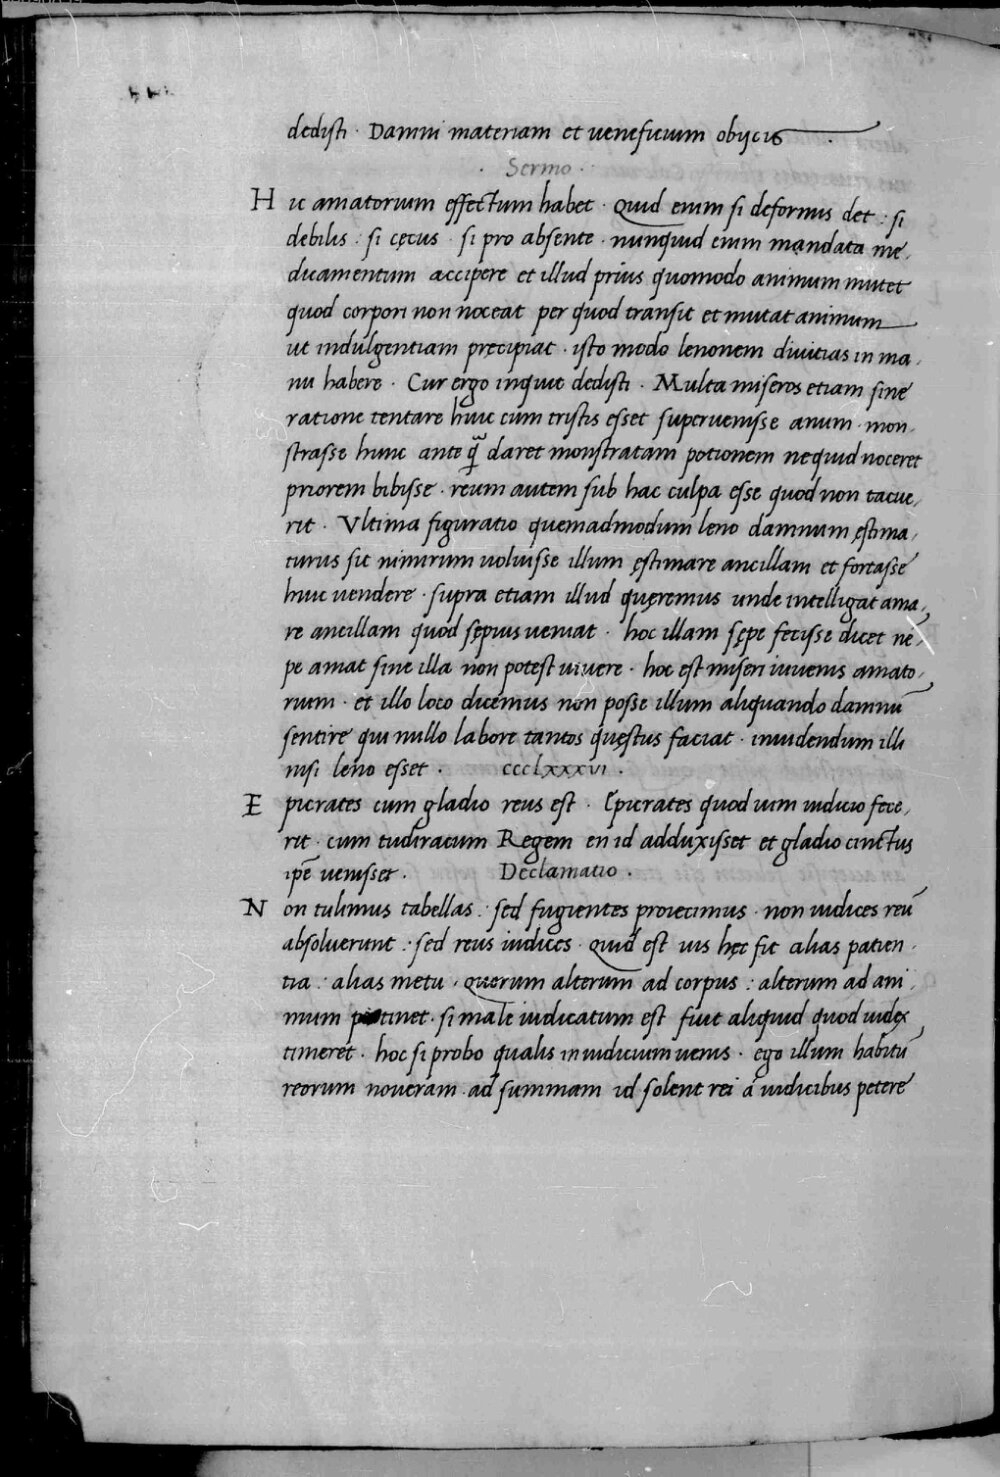 dedisti · Damni materiam et veneficium obijcis ·
· Sermo ·
H ic amatorium effectum habet · Quid enim si deformis det : si
debilis : si cęcus · si pro absente · nunquid enim mandata me,
dicamentum accipere et illud prius quomodo animum mutet
quod corpori non noceat per quod transit et mutat animum
ut indulgentiam pręcipiat · isto modo lenonem divitias in ma,
nu habere · Cur ergo inquit dedisti · Multa miseros etiam sine
ratione tentare huic cum tristis esset supervenisse anum · mon,
strasse hunc ante q̃ daret monstratam potionem nequid noceret
priorem bibisse · reum autem sub hac culpa esse quod non tacue,
rit · Ultima figuratio quemadmodum leno damnum ęstima,
turus sit nimirum voluisse illum ęstimare ancillam et fortasse
huic vendere · supra etiam illud quęremus unde intelligat ama,
re ancillam quod sępius veniat · hoc illam sępe fecisse dicet ne,
pe amat sine illa non potest vivere · hoc est miseri iuvenis amato,
rium · et illo loco dicemus non posse illum aliquando damnũ
sentire qui nullo labore tantos quęstus faciat · invidendum illi
nisi leno esset · ccclxxxvi ·
E picrates cum gladio reus est · Epicrates quod vim iudicio fece,
rit · cum tudiracum Regem en id adduxisset et gladio cinctus
ip̃e venisset · Declamatio ·
N on tulimus tabellas : sed fugientes proiecimus · non iudices reũ
absolverunt : sed reus iudices · Quid est vis hęc fit alias patien,
tia : alias metu · Quorum alterum ad corpus : alterum ad ani,
mum pertinet · si male iudicatum est fuit aliquid quod iudex
timeret · hoc si probo qualis in iudicium venis · ego illum habitũ
reorum noveram · ad summam id solent rei a iudicibus petere